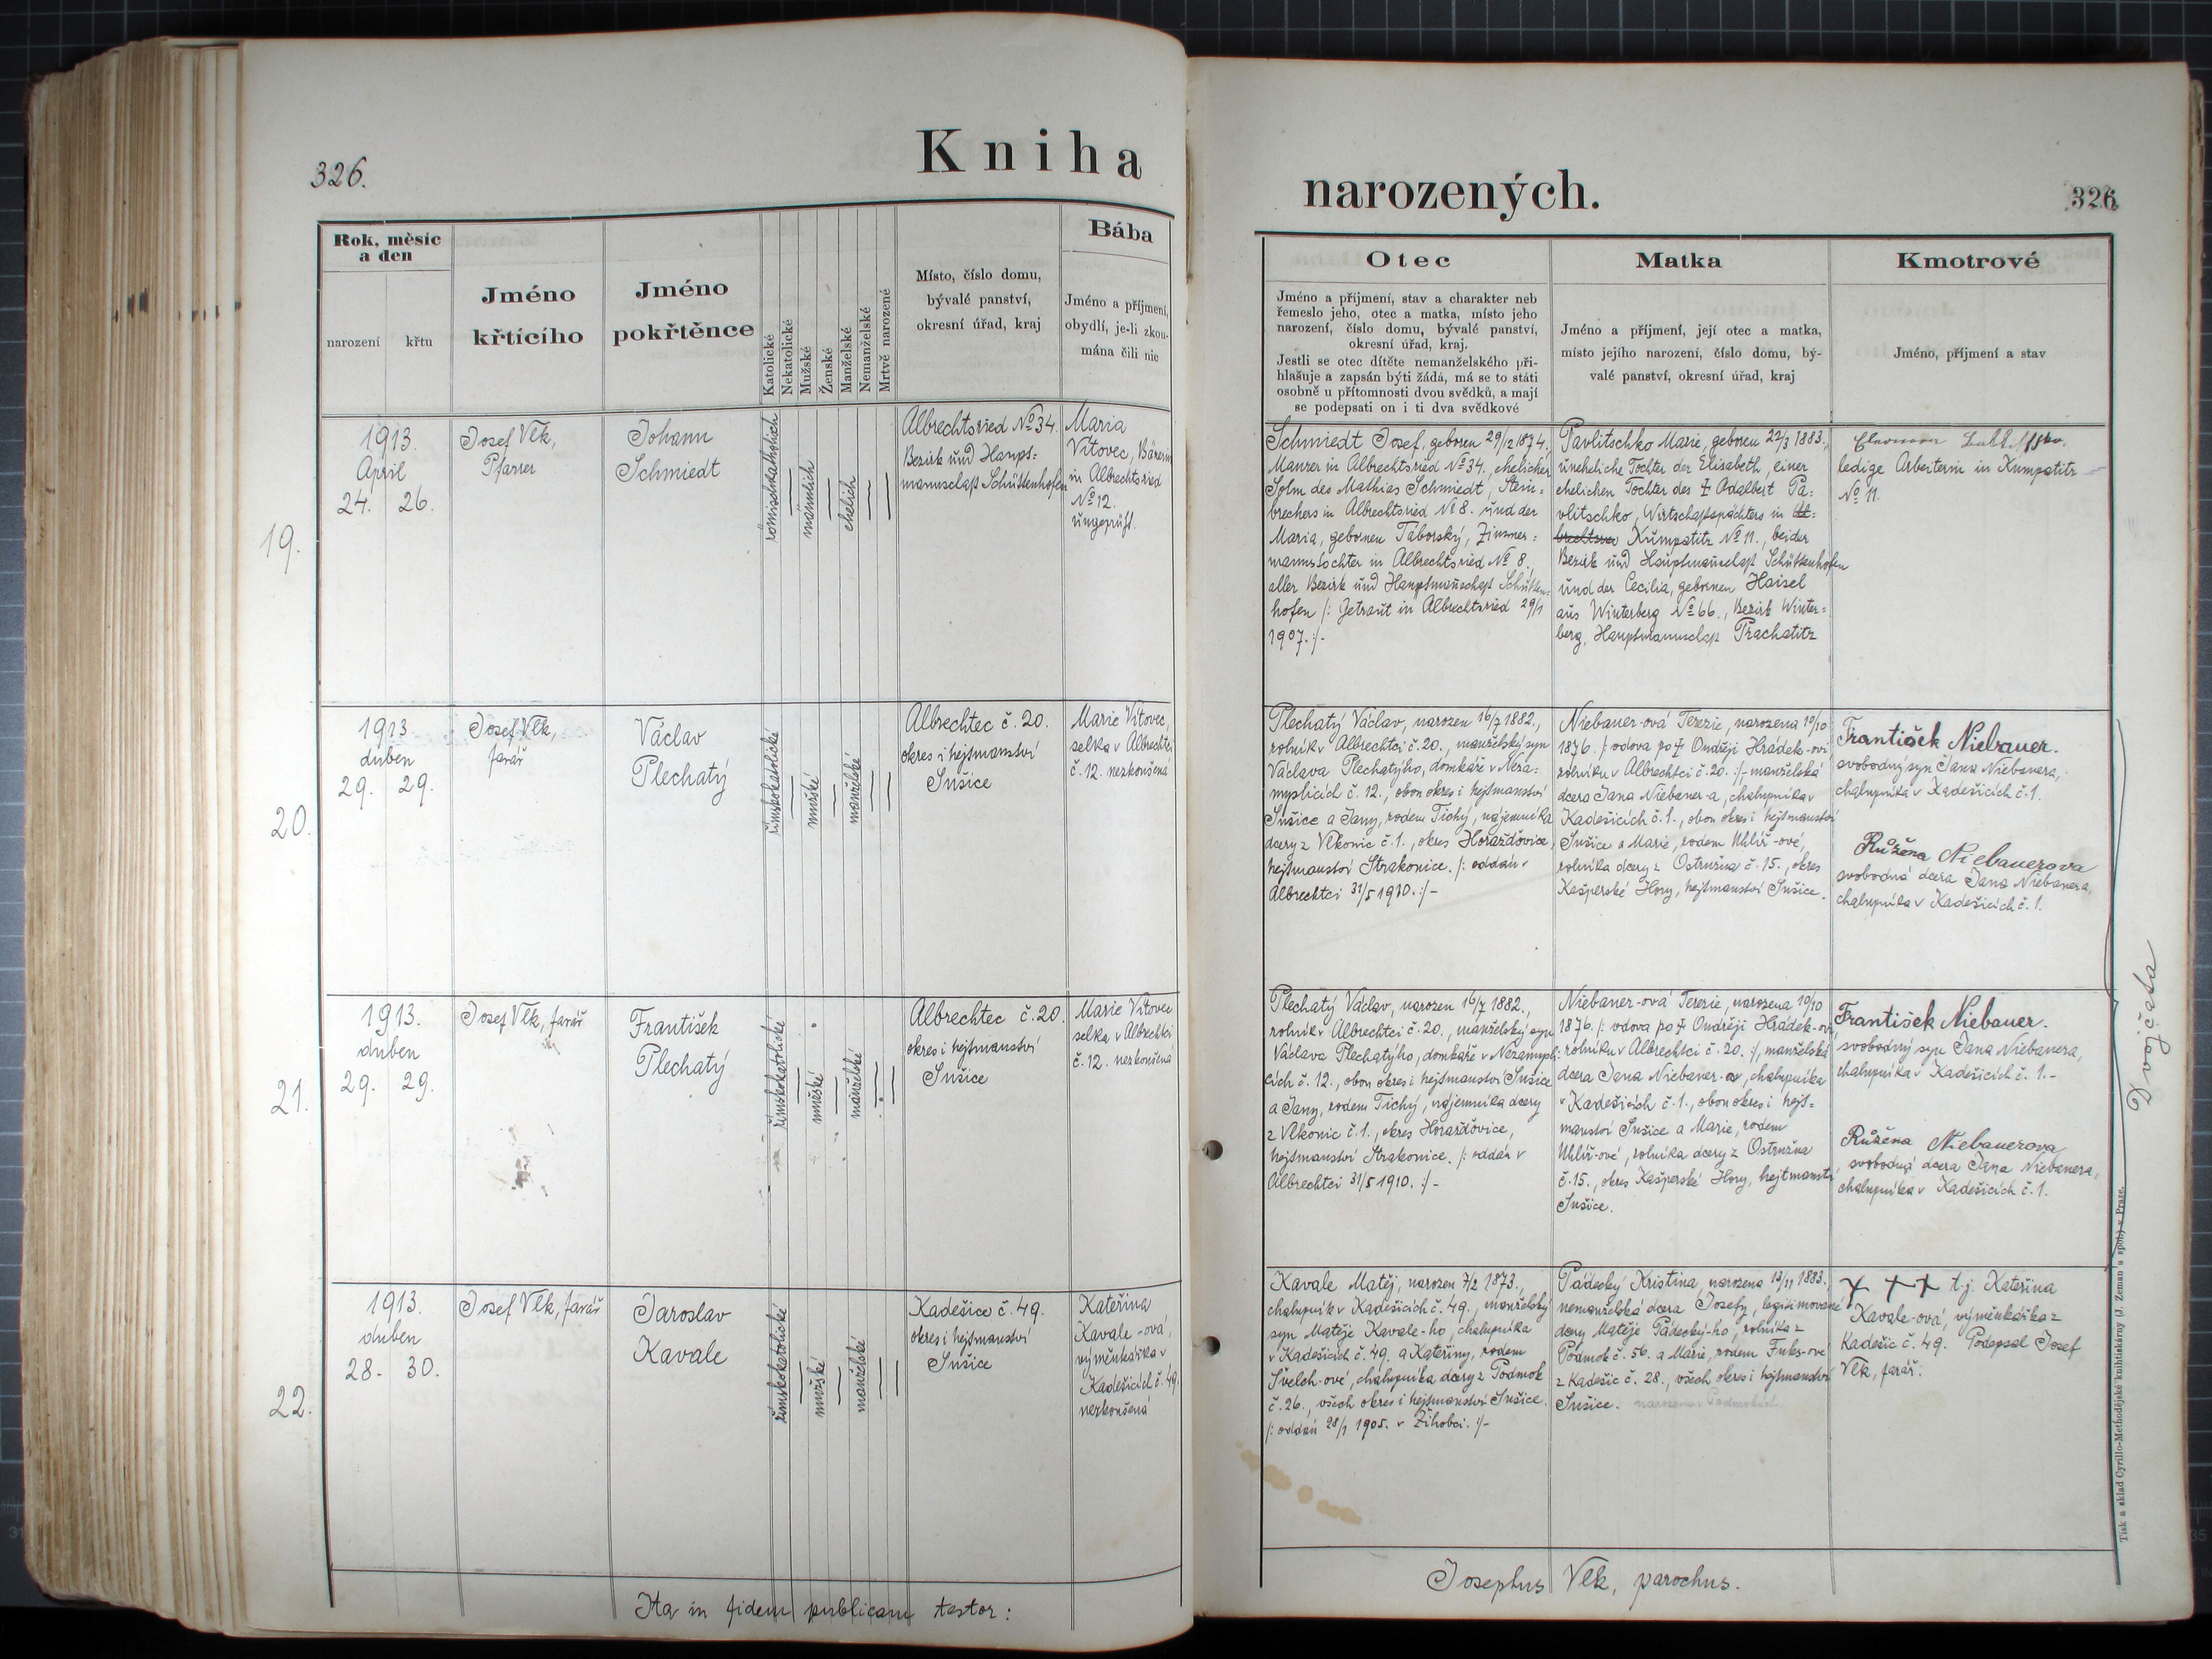 326.
Kniha
Rok, měsíc
a den
narození
křtu
Jméno
křtícího
Jméno
pokřtěnce
Katolické
Nekatolické
Mužské
Ženské
Manželské
Nemanželské
Mrtvě narozené
Místo, číslo domu,
bývalé panství,
okresní úřad, kraj
Bába
Jméno a příjmení,
obydlí, je-li zkou-
mána čili nic
19.
1913.
April
24. 26.
Josef Vlk,
Pfarrer
Johann
Schmiedt
römischkatholisch
männlich
ehelich
Albrechtsried No 34.
Bezirk und Haupt-
mannschaft Schüttenhofen
Maria
Vítovec, Bäuerin
in Albrechtsried
No 12.
ungeprüft.
20.
1913.
duben
29. 29.
Josef Vlk,
farář
Václav
Plechatý
římskokatolické
mužské
manželské
Albrechtec č. 20.
okres i hejtmanství
Sušice
Marie Vítovec,
selka v Albrechtci
č. 12. nezkoušená
21.
1913.
duben
29. 29.
Josef Vlk, farář
František
Plechatý
římskokatolické
mužské
manželské
Albrechtec č. 20.
okres i hejtmanství
Sušice
Marie Vítovec
selka v Albrechtci
č. 12. nezkoušená
22.
1913.
duben
28. 30.
Josef Vlk, farář
Jaroslav
Kavale
římskokatolické
mužské
manželské
Kadešice č. 49.
okres i hejtmanství
Sušice
Kateřina
Kavale-ová,
výměnkářka v
Kadešicích č. 49.
nezkoušená
Ita in fidem publicam testor:
narozených.
326
Otec
Jméno a příjmení, stav a charakter neb
řemeslo jeho, otec a matka, místo jeho
narození, číslo domu, bývalé panství,
okresní úřad, kraj.
Jestli se otec dítěte nemanželského při-
hlašuje a zapsán býti žádá, má se to státi
osobně u přítomnosti dvou svědků, a mají
se podepsati on i ti dva svědkové
Matka
Jméno a příjmení, její otec a matka,
místo jejího narození, číslo domu, bý-
valé panství, okresní úřad, kraj
Kmotrové
Jméno, příjmení a stav
Schmiedt Josef, geboren 29/2 1874,
Maurer in Albrechtsried No 34, ehelicher
Sohn des Mathias Schmiedt, Stein-
brechers in Albrechtsried No 8. und der
Maria, gebornen Táborský, Zimmer-
mannstochter in Albrechtsried No 8.,
aller Bezirk und Hauptmannschaft Schütten-
hofen /: Getraut in Albrechtsried 29/1
1907. :/-
Pavlitschko Marie, geboren 22/3 1883.,
uneheliche Tochter der Elisabeth, einer
ehelichen Tochter des ‡ Adalbert Pa-
vlitschko, Wirtschaftspächters in Al-
brechtsried Kumpatitz No 11., beider
Bezirk und Hauptmannschaft Schüttenhofen
und der Cecilia, gebornen Haisel
aus Winterberg No 66., Bezirk Winter-
berg, Hauptmannschaft Prachatitz
ledige Arbeiterin in Kumpatitz
No 11.
Plechatý Václav, narozen 16/7 1882.,
rolník v Albrechtci č. 20., manželský syn
Václava Plechatýho, domkáře v Neza-
myslicích č. 12., obou okres i hejtmanství
Sušice a Jany, rodem Tichý, nájemníka
dcery z Vlkonic č. 1., okres Horažďovice,
hejtmanství Strakonice. /: oddán v
Albrechtci 31/5 1910. :/-
Niebauer-ová Terezie, narozena 10/10
1876. /: vdova po ‡ Ondřeji Hrádek-ovi
rolníku v Albrechtci č. 20. :/- manželská
dcera Jana Niebauer-a, chalupníka v
Kadešicích č. 1., obou okres i hejtmanství
Sušice a Marie, rodem Uhlíř-ové,
rolníka dcery z Ostružna č. 15., okres
Kašperské Hory, hejtmanství Sušice.
František Niebauer.
svobodný syn Jana Niebauera,
chalupníka v Kadešicích č. 1.
Růžena Niebauerova
svobodná dcera Jana Niebauera,
chalupníka v Kadešicích č. 1.
Plechatý Václav, narozen 16/7 1882.,
rolník v Albrechtci č. 20., manželský syn
Václava Plechatýho, domkáře v Nezamysli-
cích č. 12., obou okres i hejtmanství Sušice
a Jany, rodem Tichý, nájemníka dcery
z Vlkonic č. 1., okres Horažďovice,
hejtmanství Strakonice. /: oddán v
Albrechtci 31/5 1910. :/-
Niebauer-ová Terezie, narozena 10/10
1876. /: vdova po ‡ Ondřeji Hrádek-ovi
rolníku v Albrechtci č. 20. :/, manželská
dcera Jana Niebauer-a, chalupníka
v Kadešicích č. 1., obou okres i hejt-
manství Sušice a Marie, rodem
Uhlíř-ové, rolníka dcery z Ostružna
č. 15., okres Kašperské Hory, hejtmanství
Sušice.
František Niebauer.
svobodný syn Jana Niebauera,
chalupníka v Kadešicích č. 1.-
Růžena Niebauerova
svobodná dcera Jana Niebauera,
chalupníka v Kadešicích č. 1.
Dvojčata
Kavale Matěj, narozen 7/2 1873.,
chalupník v Kadešicích č. 49., manželský
syn Matěje Kavale-ho, chalupníka
v Kadešicích č. 49. a Kateřiny, rodem
Švelch-ové, chalupníka dcery z Podmok
č. 26., všech okres i hejtmanství Sušice.
/: oddán 28/1 1905. v Žihobci. :/-
Pádecký Kristina, narozena 13/11 1883.,
nemanželská dcera Josefy, legitimované
dcery Matěje Pádecký-ho, rolníka z
Podmok č. 56. a Marie, rodem Fuks-ové
z Kadešic č. 28., všech okres i hejtmanství
Sušice. narozena v Podmokách
+ + + t.j. Kateřina
Kavale-ová, výměnkářka z
Kadešic č. 49. Podepsal Josef
Vlk, farář.
Josephus Vlk, parochus.
Tisk a sklad Cyrillo-Methodějské knihtiskárny (J. Zeman a spol.) v Praze.